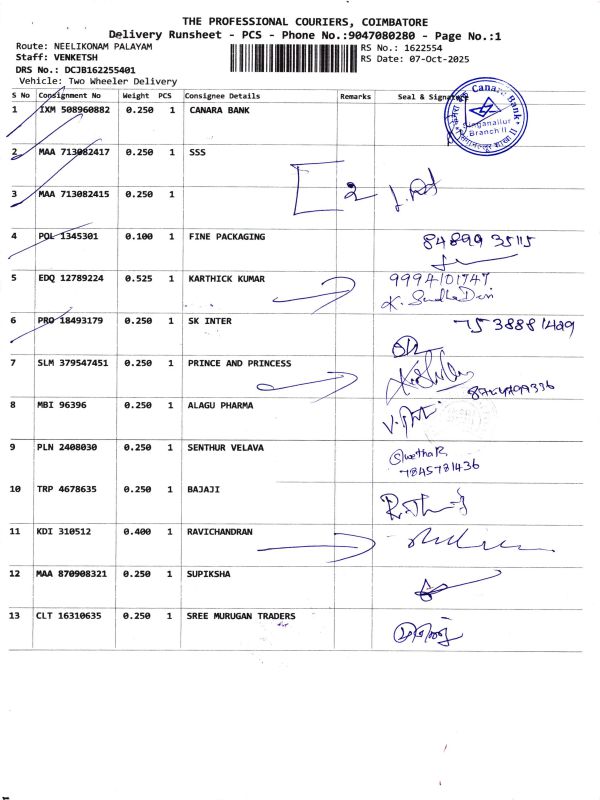 THE PROFESSIONAL COURIERS, COIMBATORE
Delivery Runsheet - PCS - Phone No.:9047080280 - Page No.:1
Route: NEELIKONAM PALAYAM
RS No.: 1622554
Staff: VENKETSH
RS Date: 07-Oct-2025
DRS No.: DCJB162255401
Vehicle: Two Wheeler Delivery
S No Consignment No Weight PCS Consignee Details Remarks Seal & Signature
1 IXM 508960882 0.250 1 CANARA BANK
Canara Bank
Singanallur
Branch II
2 MAA 713082417 0.250 1 SSS
3 MAA 713082415 0.250 1
2
4 POL 1345301 0.100 1 FINE PACKAGING
84899 35115
5 EDQ 12789224 0.525 1 KARTHICK KUMAR
9994101747
K. Sendha Devi
6 PRO 18493179 0.250 1 SK INTER
7538881429
7 SLM 379547451 0.250 1 PRINCE AND PRINCESS
8 MBI 96396 0.250 1 ALAGU PHARMA
9 PLN 2408030 0.250 1 SENTHUR VELAVA
Swetha R
7845781436
10 TRP 4678635 0.250 1 BAJAJI
11 KDI 310512 0.400 1 RAVICHANDRAN
12 MAA 870908321 0.250 1 SUPIKSHA
13 CLT 16310635 0.250 1 SREE MURUGAN TRADERS